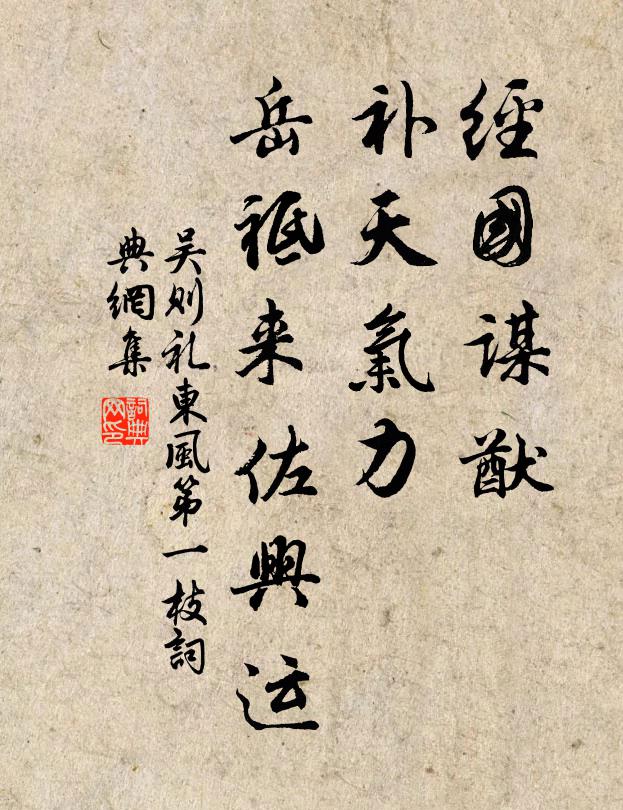 經國謀猷
补天氣力
岳祗来佐興运
吴则礼東風第一枝詞
典網集
詞典网印